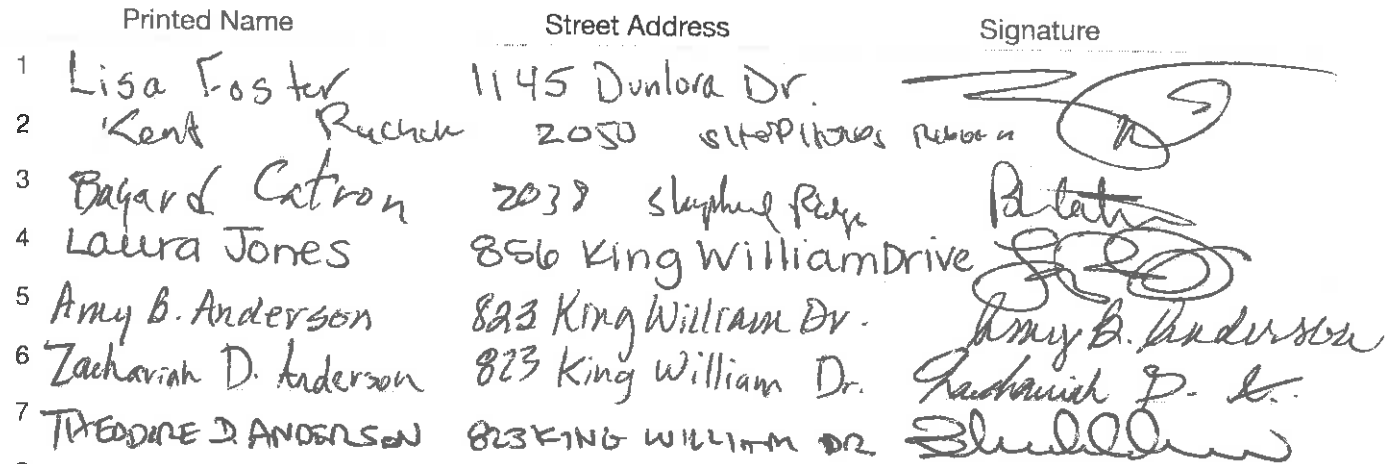 Printed Name Street Address Signature
1 Lisa Foster 1145 Dunlora Dr.
2 Kent 2050
3 Bayard Catron 2038 Ridge
4 Laura Jones 856 King William Drive
5 Amy B. Anderson 823 King William Dr. Amy B. Anderson
6 Zachariah D. Anderson 823 King William Dr. Zachariah D. A.
7 THEODORE D. ANDERSON 823 KING WILLIAM DR.